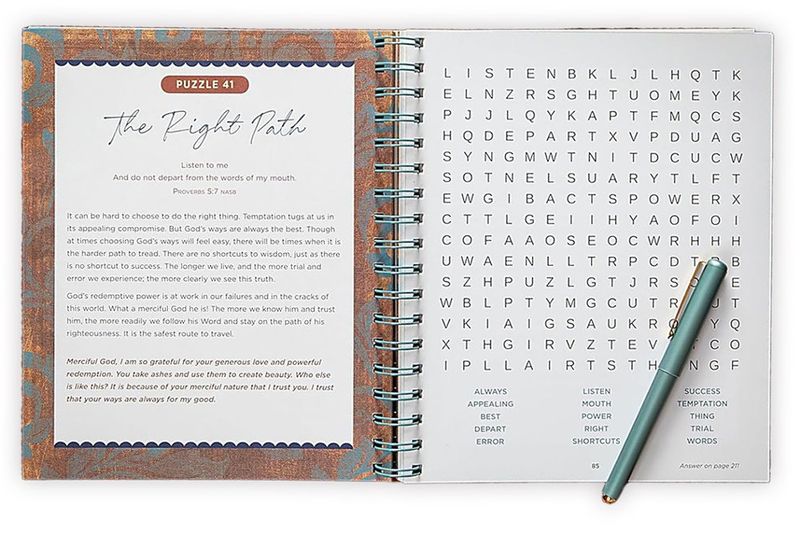 PUZZLE 41
The Right Path
Listen to me
And do not depart from the words of my mouth.
PROVERBS 5:7 NASB
It can be hard to choose to do the right thing. Temptation tugs at us in
its appealing compromise. But God's ways are always the best. Though
at times choosing God's ways will feel easy, there will be times when it is
the harder path to tread. There are no shortcuts to wisdom, just as there
is no shortcut to success. The longer we live, and the more trial and
error we experience; the more clearly we see this truth.
God's redemptive power is at work in our failures and in the cracks of
this world. What a merciful God he is! The more we know him and trust
him, the more readily we follow his Word and stay on the path of his
righteousness. It is the safest route to travel.
Merciful God, I am so grateful for your generous love and powerful
redemption. You take ashes and use them to create beauty. Who else
is like this? It is because of your merciful nature that I trust you. I trust
that your ways are always for my good.
L I S T E N B K L J L H Q T K
E L N Z R S G H T U O M E Y K
P J J L Q Y K A P T F M Q C S
H Q D E P A R T X V P D U A G
S Y N G M W T N I T D C U C W
S O T N E L S U A R Y T L F T
E W G I B A C T S P O W E R X
C T T L G E I I H Y A O F O I
C O F A A O S E O C W R H H H
U W A E N L L T R P C D T B
S Z H P U Z L G T J R S E
W B L P T Y M G C U T R U T
V K I A I G S A U K R Y Q
X T H G I R V Z T E V C O
I P L L A I R T S T H N G F
ALWAYS LISTEN SUCCESS
APPEALING MOUTH TEMPTATION
BEST POWER THING
DEPART RIGHT TRIAL
ERROR SHORTCUTS WORDS
85 Answer on page 211